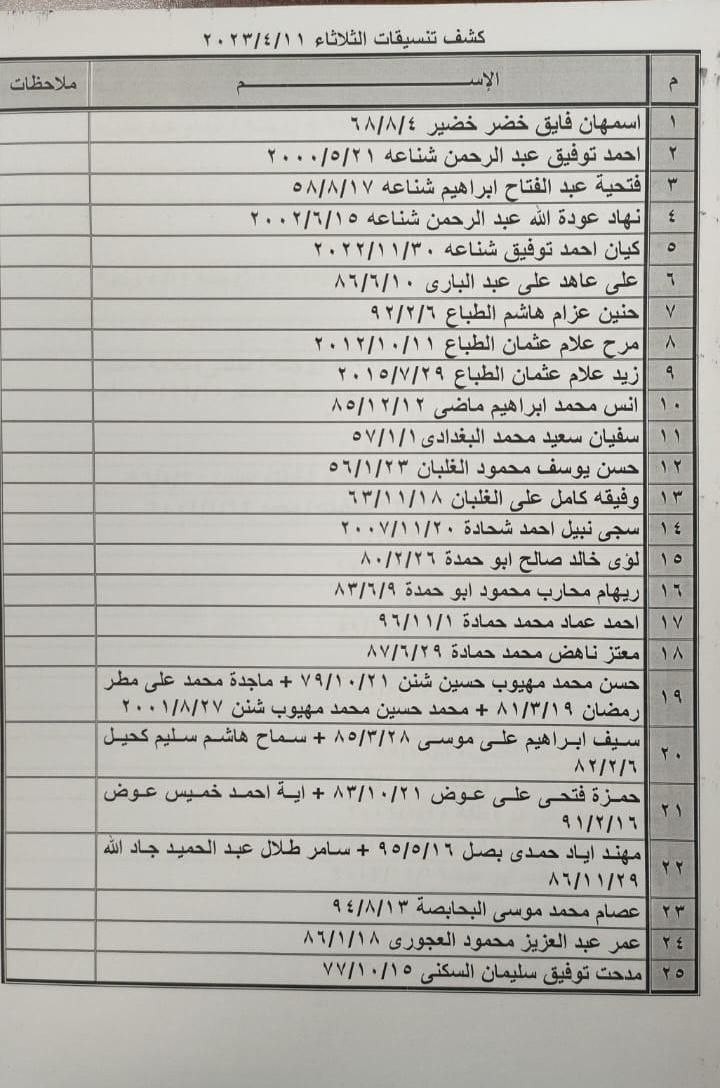 كشف تنسيقات الثلاثاء ٢٠٢٣/٤/١١
م الإســــــــــــم ملاحظات
١ اسمهان فايق خضر خضير ٦٨/٨/٤
٢ احمد توفيق عبد الرحمن شناعه ٢٠٠٠/٥/٢١
٣ فتحية عبد الفتاح ابراهيم شناعه ٥٨/٨/١٧
٤ نهاد عودة الله عبد الرحمن شناعه ٢٠٠٢/٦/١٥
٥ كيان احمد توفيق شناعه ٢٠٢٢/١١/٣٠
٦ على عاهد على عبد البارى ٨٦/٦/١٠
٧ حنين عزام هاشم الطباع ٩٢/٢/٦
٨ مرح علام عثمان الطباع ٢٠١٢/١٠/١١
٩ زيد علام عثمان الطباع ٢٠١٥/٧/٢٩
١٠ انس محمد ابراهيم ماضى ٨٥/١٢/١٢
١١ سفيان سعيد محمد البغدادى ٥٧/١/١
١٢ حسن يوسف محمود الغلبان ٥٦/١/٢٣
١٣ وفيقه كامل على الغلبان ٦٣/١١/١٨
١٤ سجى نبيل احمد شحادة ٢٠٠٧/١١/٢٠
١٥ لؤى خالد صالح ابو حمدة ٨٠/٢/٢٦
١٦ ريهام محارب محمود ابو حمدة ٨٣/٦/٩
١٧ احمد عماد محمد حمادة ٩٦/١١/١
١٨ معتز ناهض محمد حمادة ٨٧/٦/٢٩
١٩ حسن محمد مهيوب حسين شنن ٧٩/١٠/٢١ + ماجدة محمد على مطر
رمضان ٨١/٣/١٩ + محمد حسين محمد مهيوب شنن ٢٠٠١/٨/٢٧
٢٠ سيف ابراهيم على موسى ٨٥/٣/٢٨ + سماح هاشم سليم كحيل
٨٢/٢/٦
٢١ حمزة فتحى على عوض ٨٣/١٠/٢١ + اية احمد خميس عوض
٩١/٢/١٦
٢٢ مهند اياد حمدى بصل ٩٥/٥/١٦ + سامر طلال عبد الحميد جاد الله
٨٦/١١/٢٩
٢٣ عصام محمد موسى البحابصة ٩٤/٨/١٣
٢٤ عمر عبد العزيز محمود العجورى ٨٦/١/١٨
٢٥ مدحت توفيق سليمان السكنى ٧٧/١٠/١٥